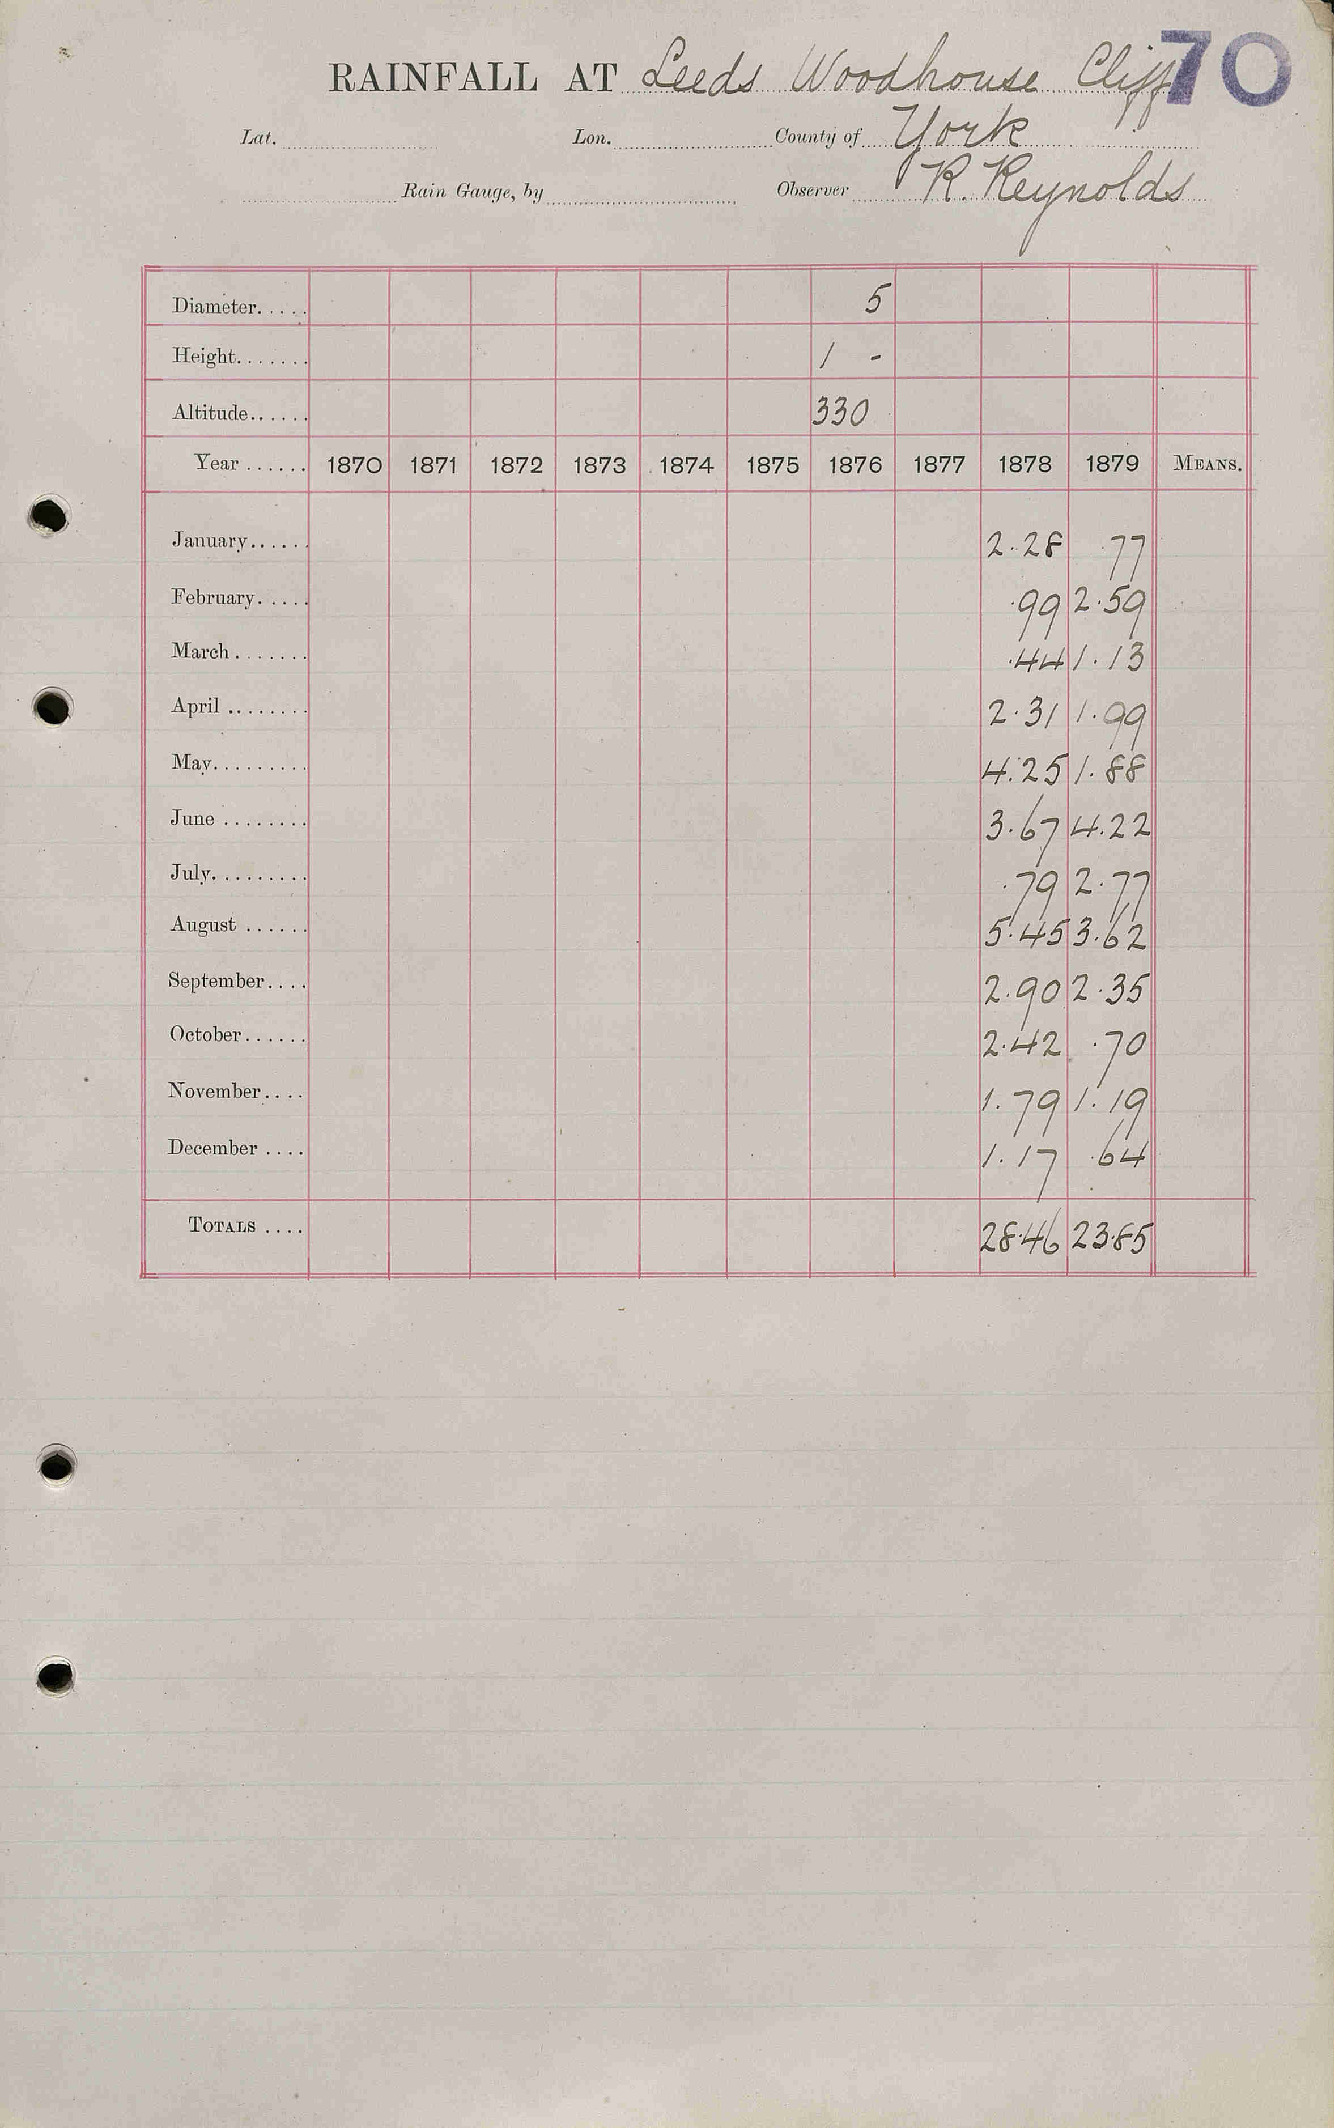 RAINFALL AT Leeds Woodhouse Cliff 70
Lat. Lon. County of York
Rain Gauge, by Observer R. Reynolds
Diameter..... 5
Height....... 1 -
Altitude...... 330
Year ...... 1870 1871 1872 1873 1874 1875 1876 1877 1878 1879 MEANS.
January...... 2.28 .77
February..... .99 2.59
March ....... .44 1.13
April ........ 2.31 1.99
May......... 4.25 1.88
June ........ 3.67 4.22
July......... .79 2.77
August ...... 5.45 3.62
September.... 2.90 2.35
October...... 2.42 .70
November.... 1.79 1.19
December .... 1.17 .64
TOTALS .... 28.46 23.85